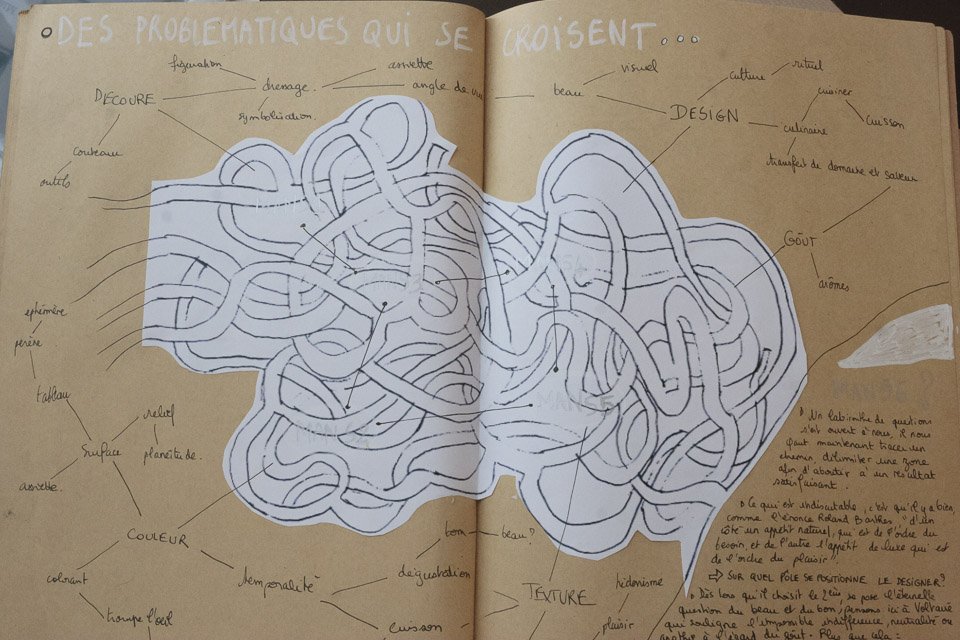 DES PROBLÉMATIQUES QUI SE CROISENT...
figuration
assiette
visuel
rituel
culture
DÉCOUPE
drenage
angle de vu
beau
cuisiner
symbolisation
DESIGN
culinaire
cuisson
couteau
transfert de domaine et saveur
outils
GOÛT
arômes
éphémère
tableau
relief
surface
planéitude
assiette
COULEUR
bon
beau?
colorant
temporalité
dégustation
hédonisme
TEXTURE
trompe l'oeil
cuisson
plaisir
Un labirinthe de questions
s'est ouvert à nous, il nous
faut maintenant tracer un
chemin délimiter une zone
afin d'aboutir à un résultat
satisfaisant.
Ce qui est indiscutable, c'est qu'il y a bien,
comme l'énonce Roland Barthes, "d'un
côté un appétit naturel, qui est de l'ordre du
besoin, et de l'autre l'appétit de luxe qui est
de l'ordre du plaisir".
⇨ SUR QUEL PÔLE SE POSITIONNE LE DESIGNER?
Dès lors qu'il choisit le 2ème, se pose l'éternelle
question du beau et du bon, pensons ici à Voltaire
qui souligne l'impossible indifférence, neutralité ou